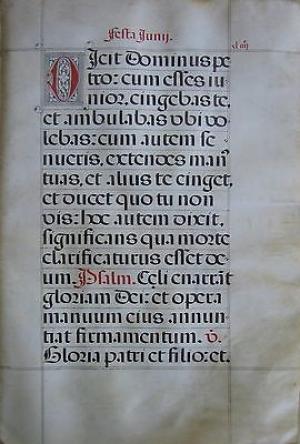 Festa Junij.
Dicit Dominus pe
tro: cum esses iu
nior, cingebas te,
et ambulabas ubi vo
lebas: cum autem se
nueris, extendes man⁹
tuas, et alius te cinget,
et ducet quo tu non
vis: hoc autem dixit,
significans qua morte
clarificaturus esset de
um. Psalm. Celi enarrāt
gloriam Dei: et opera
manuum eius annun
tiat firmamentum. v̄.
Gloria patri et filio: et.